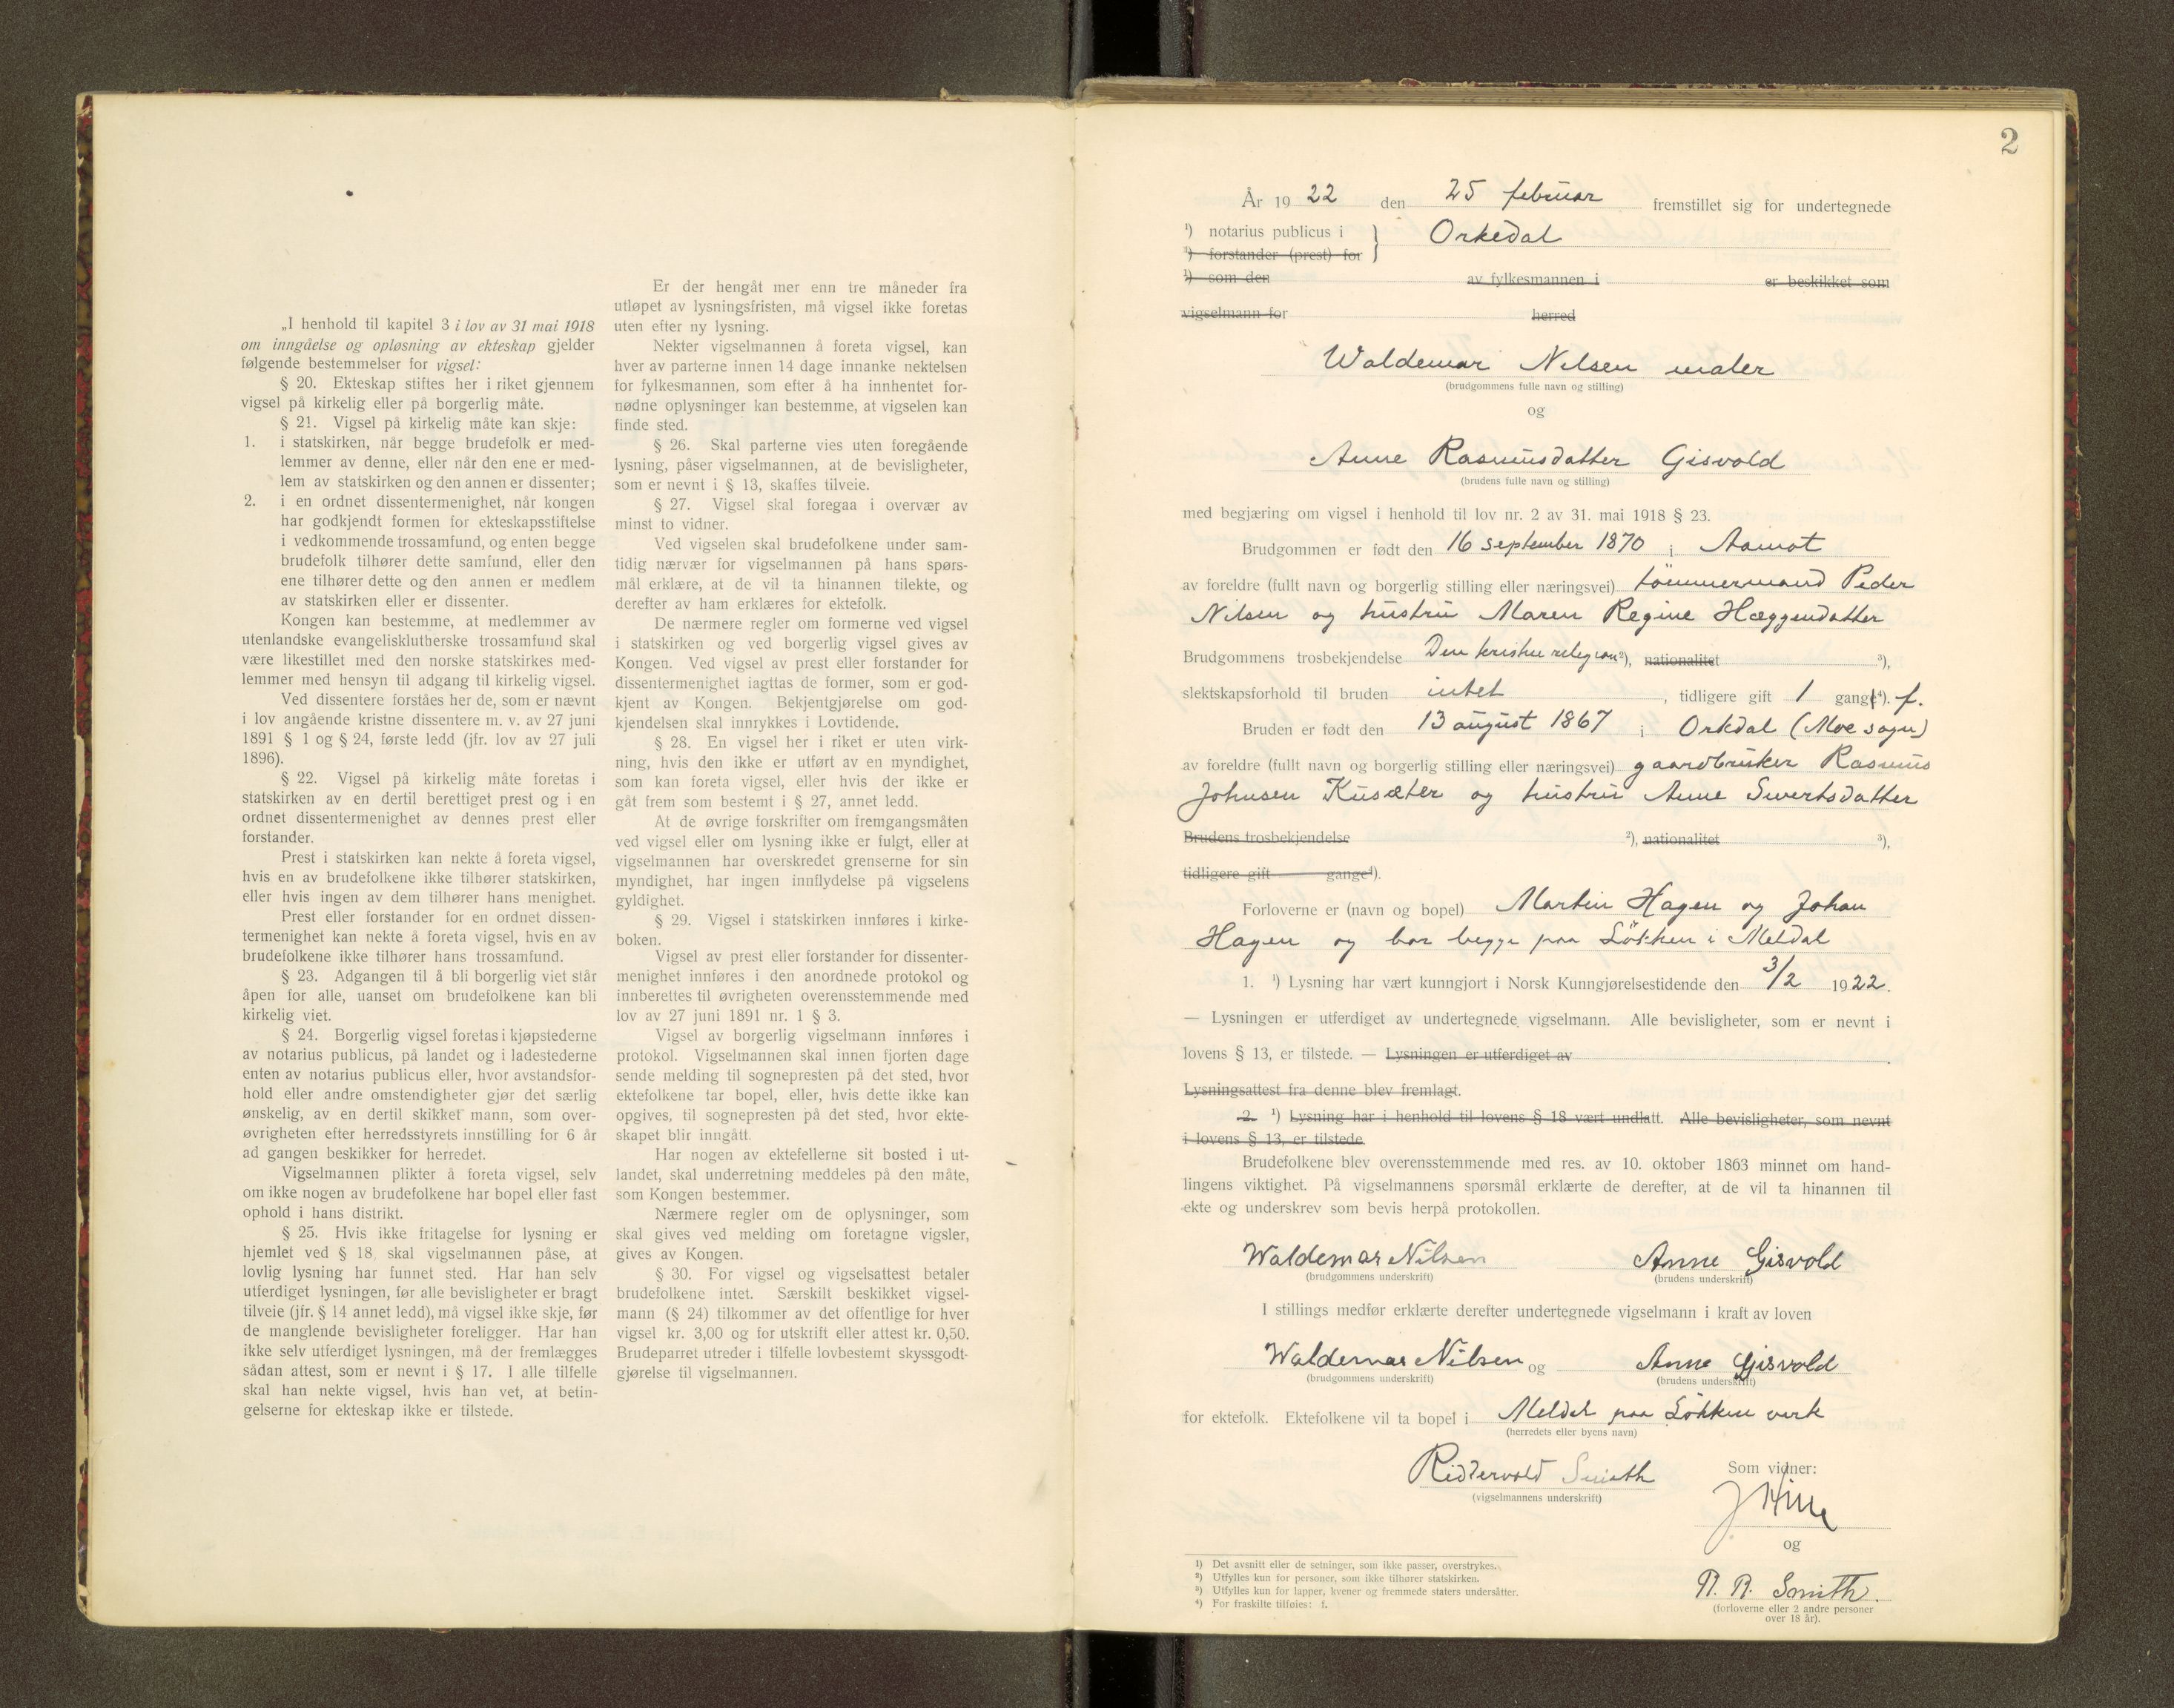 „I henhold til kapitel 3 i lov av 31 mai 1918
om inngåelse og opløsning av ekteskap gjelder
følgende bestemmelser for vigsel:
§ 20. Ekteskap stiftes her i riket gjennem
vigsel på kirkelig eller på borgerlig måte.
§ 21. Vigsel på kirkelig måte kan skje:
1. i statskirken, når begge brudefolk er med-
lemmer av denne, eller når den ene er med-
lem av statskirken og den annen er dissenter;
2. i en ordnet dissentermenighet, når kongen
har godkjendt formen for ekteskapsstiftelse
i vedkommende trossamfund, og enten begge
brudefolk tilhører dette samfund, eller den
ene tilhører dette og den annen er medlem
av statskirken eller er dissenter.
Kongen kan bestemme, at medlemmer av
utenlandske evangelisklutherske trossamfund skal
være likestillet med den norske statskirkes med-
lemmer med hensyn til adgang til kirkelig vigsel.
Ved dissentere forståes her de, som er nævnt
i lov angående kristne dissentere m. v. av 27 juni
1891 § 1 og § 24, første ledd (jfr. lov av 27 juli
1896).
§ 22. Vigsel på kirkelig måte foretas i
statskirken av en dertil berettiget prest og i en
ordnet dissentermenighet av dennes prest eller
forstander.
Prest i statskirken kan nekte å foreta vigsel,
hvis en av brudefolkene ikke tilhører statskirken,
eller hvis ingen av dem tilhører hans menighet.
Prest eller forstander for en ordnet dissen-
termenighet kan nekte å foreta vigsel, hvis en av
brudefolkene ikke tilhører hans trossamfund.
§ 23. Adgangen til å bli borgerlig viet står
åpen for alle, uanset om brudefolkene kan bli
kirkelig viet.
§ 24. Borgerlig vigsel foretas i kjøpstederne
av notarius publicus, på landet og i ladestederne
enten av notarius publicus eller, hvor avstandsfor-
hold eller andre omstendigheter gjør det særlig
ønskelig, av en dertil skikket mann, som over-
øvrigheten efter herredsstyrets innstilling for 6 år
ad gangen beskikker for herredet.
Vigselmannen plikter å foreta vigsel, selv
om ikke nogen av brudefolkene har bopel eller fast
ophold i hans distrikt.
§ 25. Hvis ikke fritagelse for lysning er
hjemlet ved § 18, skal vigselmannen påse, at
lovlig lysning har funnet sted. Har han selv
utferdiget lysningen, før alle bevisligheter er bragt
tilveie (jfr. § 14 annet ledd), må vigsel ikke skje, før
de manglende bevisligheter foreligger. Har han
ikke selv utferdiget lysningen, må der fremlægges
sådan attest, som er nevnt i § 17. I alle tilfelle
skal han nekte vigsel, hvis han vet, at betin-
gelserne for ekteskap ikke er tilstede.
Er der hengåt mer enn tre måneder fra
utløpet av lysningsfristen, må vigsel ikke foretas
uten efter ny lysning.
Nekter vigselmannen å foreta vigsel, kan
hver av parterne innen 14 dage innanke nektelsen
for fylkesmannen, som efter å ha innhentet for-
nødne oplysninger kan bestemme, at vigselen kan
finde sted.
§ 26. Skal parterne vies uten foregående
lysning, påser vigselmannen, at de bevisligheter,
som er nevnt i § 13, skaffes tilveie.
§ 27. Vigsel skal foregaa i overvær av
minst to vidner.
Ved vigselen skal brudefolkene under sam-
tidig nærvær for vigselmannen på hans spørs-
mål erklære, at de vil ta hinannen tilekte, og
derefter av ham erklæres for ektefolk.
De nærmere regler om formerne ved vigsel
i statskirken og ved borgerlig vigsel gives av
Kongen. Ved vigsel av prest eller forstander for
dissentermenighet iagttas de former, som er god-
kjent av Kongen. Bekjentgjørelse om god-
kjendelsen skal innrykkes i Lovtidende.
§ 28. En vigsel her i riket er uten virk-
ning, hvis den ikke er utført av en myndighet,
som kan foreta vigsel, eller hvis der ikke er
gåt frem som bestemt i § 27, annet ledd.
At de øvrige forskrifter om fremgangsmåten
ved vigsel eller om lysning ikke er fulgt, eller at
vigselmannen har overskredet grenserne for sin
myndighet, har ingen innflydelse på vigselens
gyldighet.
§ 29. Vigsel i statskirken innføres i kirke-
boken.
Vigsel av prest eller forstander for dissenter-
menighet innføres i den anordnede protokol og
innberettes til øvrigheten overensstemmende med
lov av 27 juni 1891 nr. 1 § 3.
Vigsel av borgerlig vigselmann innføres i
protokol. Vigselmannen skal innen fjorten dage
sende melding til sognepresten på det sted, hvor
ektefolkene tar bopel, eller, hvis dette ikke kan
opgives, til sognepresten på det sted, hvor ekte-
skapet blir inngått.
Har nogen av ektefellerne sit bosted i ut-
landet, skal underretning meddeles på den måte,
som Kongen bestemmer.
Nærmere regler om de oplysninger, som
skal gives ved melding om foretagne vigsler,
gives av Kongen.
§ 30. For vigsel og vigselsattest betaler
brudefolkene intet. Særskilt beskikket vigsel-
mann (§ 24) tilkommer av det offentlige for hver
vigsel kr. 3,00 og for utskrift eller attest kr. 0,50.
Brudeparret utreder i tilfelle lovbestemt skyssgodt-
gjørelse til vigselmannen.
2
År 1922 den 25 februar fremstillet sig for undertegnede
¹) notarius publicus i } Orkedal
¹) forstander (prest) for
¹) som den av fylkesmannen i er beskikket som
vigselmann for herred
Waldemar Nilsen maler
(brudgommens fulle navn og stilling)
og
Anne Rasmusdatter Gisvold
(brudens fulle navn og stilling)
med begjæring om vigsel i henhold til lov nr. 2 av 31. mai 1918 § 23.
Brudgommen er født den 16 september 1870 i Aamot
av foreldre (fullt navn og borgerlig stilling eller næringsvei) tømmermand Peder
Nilsen og hustru Maren Regine Hæggendatter
Brudgommens trosbekjendelse Den kristne religion ²), nationalitet ³),
slektskapsforhold til bruden intet, tidligere gift 1 gang ⁴). f.
Bruden er født den 13 august 1867 i Orkdal (Moe sogn)
av foreldre (fullt navn og borgerlig stilling eller næringsvei) gaardbruker Rasmus
Johnsen Kusæter og hustru Anne Sivertsdatter
Brudens trosbekjendelse ²), nationalitet ³),
tidligere gift gange⁴).
Forloverne er (navn og bopel) Martin Hagen og Johan
Hagen og bor begge paa Løkken i Meldal
1. ¹) Lysning har vært kunngjort i Norsk Kunngjørelsestidende den 3/2 1922.
— Lysningen er utferdiget av undertegnede vigselmann. Alle bevisligheter, som er nevnt i
lovens § 13, er tilstede. — Lysningen er utferdiget av
Lysningsattest fra denne blev fremlagt.
2. ¹) Lysning har i henhold til lovens § 18 vært undlatt. Alle bevisligheter, som nevnt
i lovens § 13, er tilstede.
Brudefolkene blev overensstemmende med res. av 10. oktober 1863 minnet om hand-
lingens viktighet. På vigselmannens spørsmål erklærte de derefter, at de vil ta hinannen til
ekte og underskrev som bevis herpå protokollen.
Waldemar Nilsen Anne Gisvold
(brudgommens underskrift) (brudens underskrift)
I stillings medfør erklærte derefter undertegnede vigselmann i kraft av loven
Waldemar Nilsen og Anne Gisvold
(brudgommens underskrift) (brudens underskrift)
for ektefolk. Ektefolkene vil ta bopel i Meldal paa Løkken verk
(herredets eller byens navn)
Riddervold Smith
(vigselmannens underskrift)
Som vidner:
og
R. R. Smith.
(forloverne eller 2 andre personer
over 18 år).
¹) Det avsnitt eller de setninger, som ikke passer, overstrykes.
²) Utfylles kun for personer, som ikke tilhører statskirken.
³) Utfylles kun for lapper, kvener og fremmede staters undersåtter.
⁴) For fraskilte tilføies: f.